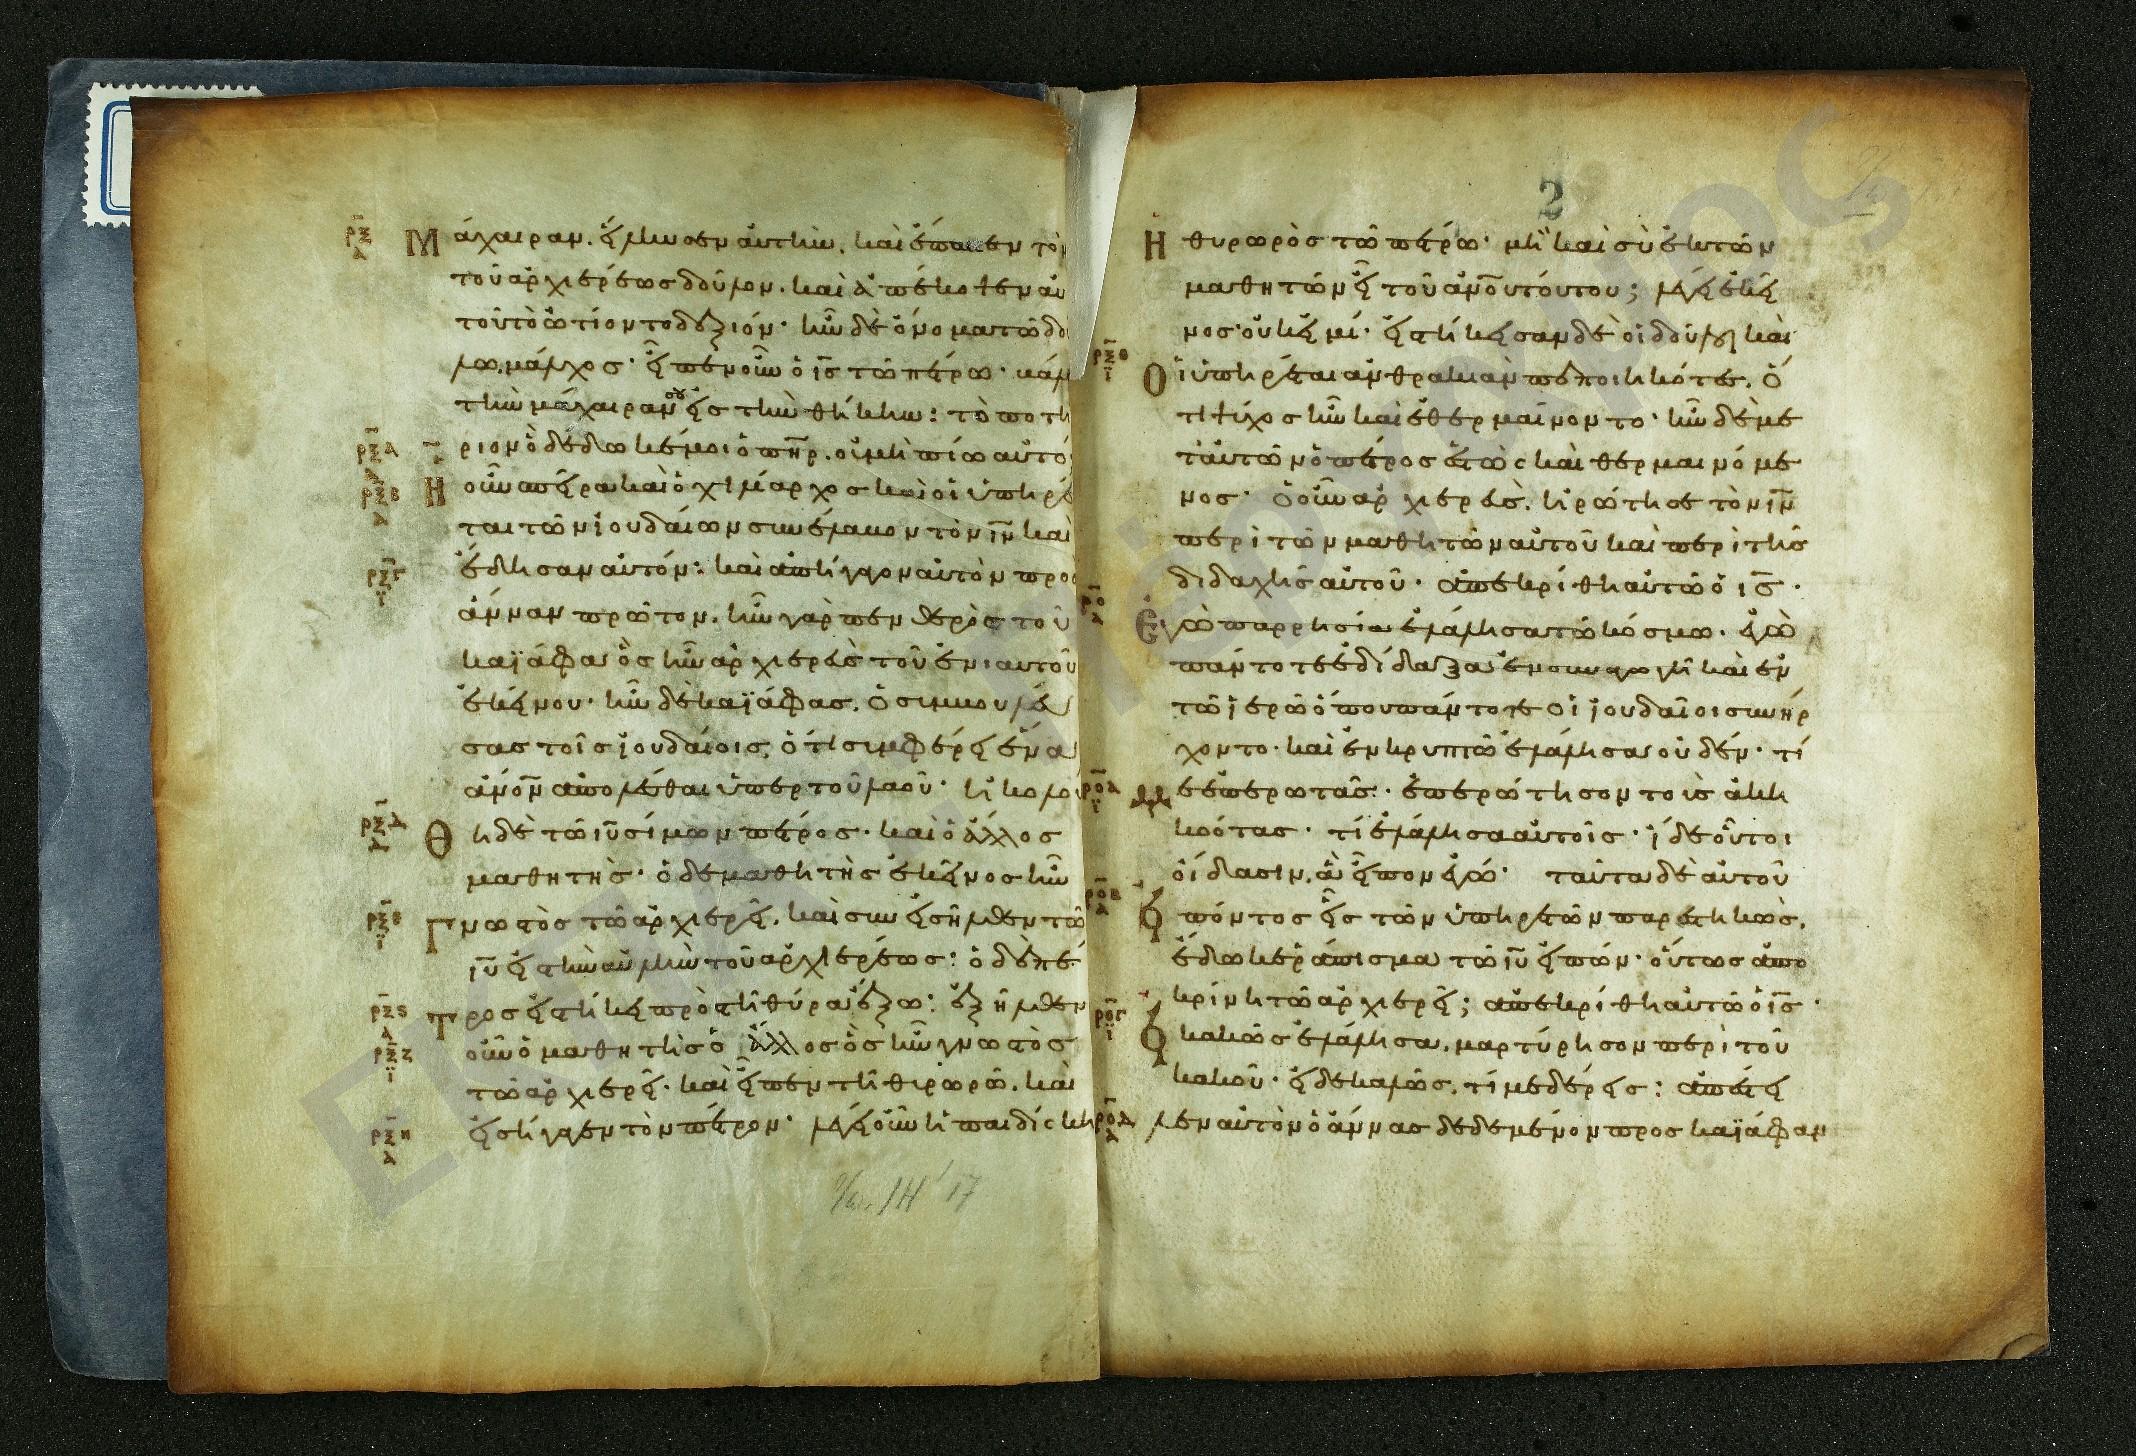 Μάχαιραν. εἵλκυσεν αὐτὴν. καὶ ἔπαισεν τὸν
τοῦ ἀρχιερέως δοῦλον. καὶ ἀπέκοψεν αὐ
τοῦ τὸ ὠτίον τὸ δεξιόν· ἦν δὲ ὄνομα τῶ δού
λω. μάλχος· εἶπεν οὖν ὁ ις τῶ πέτρω· βάλε
τὴν μάχαιράν σου εἰς τὴν θήκην: τὸ ποτή
ριον ὃ δέδωκέ μοι ὁ πηρ. οὐ μὴ πίω αὐτό
Η οὖν σπεῖρα καὶ ὁ χιλίαρχος καὶ οἱ ὑπηρέ
ται τῶν ἰουδαίων συνέλαβον τὸν ιν καὶ
ἔδησαν αὐτόν: καὶ ἀπήγαγον αὐτὸν προς
ἄνναν πρῶτον. ἦν γὰρ πενθερὸς τοῦ
καϊάφα ὃς ἦν ἀρχιερεὺς τοῦ ἐνιαυτοῦ
ἐκείνου· ἦν δὲ καϊάφας. ὁ συμβουλεύ
σας τοῖς ἰουδαίοις, ὅτι συμφέρει ἕνα
ἀνον ἀπολέσθαι ὑπὲρ τοῦ λαοῦ· ἠκολού
Θ η δὲ τῶ ιυ σίμων πέτρος· καὶ ὁ ἄλλος
μαθητὴς· ὁ δὲ μαθητὴς ἐκεῖνος ἦν
Γνωστὸς τῶ ἀρχιερεῖ. καὶ συνεισῆλθεν τῶ
ιυ εἰς τὴν αὐλὴν τοῦ ἀρχιερέως: ὁ δὲ πέ
Τρος εἱστήκει πρὸς τῆ θύρα ἔξω: ἐξῆλθεν
οὖν ὁ μαθητὴς ὁ ἄλλος ὃς ἦν γνωστὸς
τῶ ἀρχιερεῖ· καὶ εἶπεν τῆ θυρωρῶ. καὶ
εἰσήγαγεν τὸν πέτρον· λέγει οὖν ἡ παιδίσκη
Η θυρωρὸς τῶ πέτρω· μὴ καὶ σὺ ἐκ τῶν
μαθητῶν εἶ τοῦ ἀνου τούτου; λέγει ἐκεῖ
νος· οὐκ εἰμί· εἱστήκεισαν δὲ οἱ δοῦλοι καὶ
Οἱ ὑπηρέται ἀνθρακιὰν πεποιηκότες. ὅ
τι ψύχος ἦν καὶ ἐθερμαίνοντο· ἦν δὲ με
τ' αὐτῶν ὁ πέτρος ἑστὼς καὶ θερμαινόμε
νος· ὁ οὖν ἀρχιερεὺς. ἠρώτησε τὸν ιν
περὶ τῶν μαθητῶν αὐτοῦ καὶ περὶ τῆς
διδαχῆς αὐτοῦ· ἀπεκρίθη αὐτῶ ὁ ις·
Ἐγὼ παρρησία ἐλάλησα τῶ κόσμω. ἐγὼ
πάντοτε ἐδίδαξα ἐν συναγωγῆ καὶ ἐν
τῶ ἱερῶ ὅπου πάντοτε οἱ ἰουδαῖοι συνήρ
χοντο· καὶ ἐν κρυπτῶ ἐλάλησα οὐδέν· τί
με ἐπερωτᾶς: ἐπερώτησον τοὺς ἀκη
κοότας· τί ἐλάλησα αὐτοῖς· ἴδε οὗτοι
οἴδασιν. ἃ εἶπον ἐγώ· ταῦτα δὲ αὐτοῦ
εἰπόντος εἷς τῶν ὑπηρετῶν παρεστηκὼς.
ἔδωκε ῥάπισμα τῶ ιυ εἰπών· οὕτως ἀπο
κρίνη τῶ ἀρχιερεῖ; ἀπεκρίθη αὐτῶ ὁ ις·
εἰ κακῶς ἐλάλησα. μαρτύρησον περὶ τοῦ
κακοῦ· εἰ δὲ καλῶς. τί με δέρεις: ἀπέστει
λεν αὐτὸν ὁ ἄννας δεδεμένον προς καϊάφαν